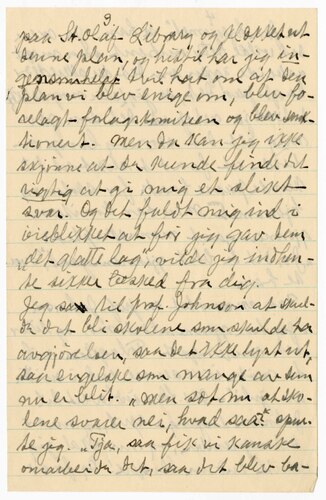 3
paa St. Olaf Library og klekket ut
denne plan, og hittil har jeg in-
gensomhelst tvil hørt om at den
plan vi blev enige om, blev fo-
relagt forlagskomiteen og blev sank-
tionert. Men da kan jeg ikke
skjønne at de kunde finde det
rigtig at gi mig et slikt
svar. Og det faldt mig ind i
øieblikket at før jeg gav dem
"det glatte lag, vilde jeg indhen-
te sikker besked fra dig.
Jeg sa til prof. Johnson at skul-
de det bli skolene som skulde ha
avgjørelsen, saa det ikke lyst ut,
saa engelske som mange av dem
nu er blit. "Men sæt nu at sko-
lene svarer nei, hvad saa?" spur-
te jeg. "Tja, saa fik vi kanske
omarbeide det, saa det blev ba-